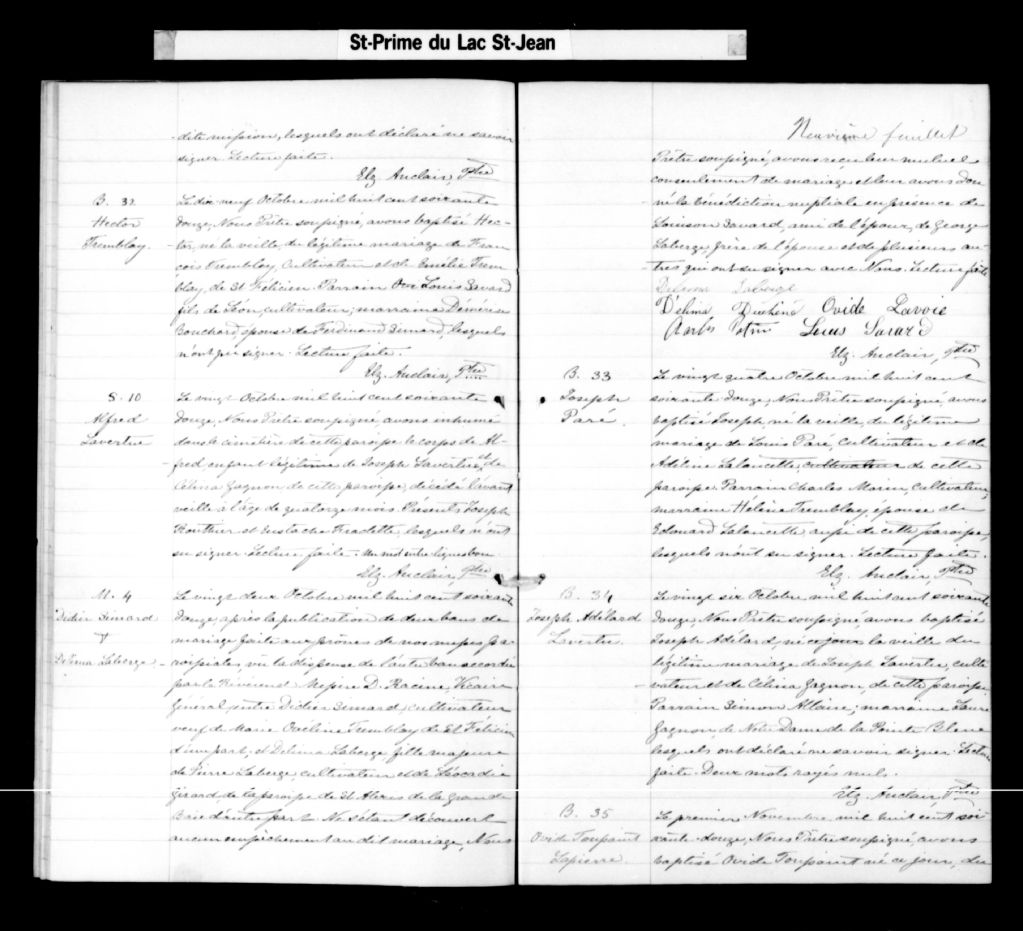 St-Prime du Lac St-Jean
dite mission, lesquels ont déclaré ne savoir
signer. Lecture faite.
Elz. Auclair, Ptre
B. 32
Hector
Tremblay.
Le dix neuf Octobre mil huit cent soixante
douze, Nous Prêtre soussigné, avons baptisé Hec-
tor, né la veille, du légitime mariage de Fran
çois Tremblay, Cultivateur et de Emélie Trem
blay, de St Félicien. Parrain Louis Savard
fils de Léon, cultivateur; marraine Démérise
Bouchard, épouse de Ferdinand Simard, lesquels
n'ont pu signer. Lecture faite.
Elz. Auclair, Ptre
S. 10
Alfred
Lavertue
Le vingt Octobre mil huit cent soixante
douze, Nous Prêtre soussigné, avons inhumé
dans le cimetière de cette paroisse le corps de Al-
-fred enfant légitime de Joseph Lavertue et de
Célina Gagnon de cette paroisse, décédé l'avant
veille à l'âge de quatorze mois. Présents Joseph
Routhier et Eustache Fradette, lesquels n'ont
su signer. Lecture faite. Un mot entre lignes bon.
Elz. Auclair, Ptre
M. 4
Didier Simard
+
Delima Laberge
Le vingt deux Octobre mil huit cent soixante
douze, après la publication de deux bans de
mariage faite aux prônes de nos messes pa
-roissiales, vu la dispense de l'autre ban accordée
par le Révérend Messire D. Racine, Vicaire
Général, entre Didier Simard, cultivateur
veuf de Marie Tremblay de St Félicien
d'une part, et Delima Laberge, fille majeure
de Pierre Laberge cultivateur et de Léocadie
Girard, de la paroisse de St Alexis de la Grande
Baie d'autre part. Ne s'étant découvert
aucun empêchement au dit mariage, Nous
Neuvième feuillet
Prêtre soussigné, avons reçu leur mutuel
consentement de mariage et leur avons don
-né la bénédiction nuptiale en présence de
Louison Savard, ami de l'époux, de George
Laberge, frère de l'épouse et de plusieurs au-
-tres qui ont su signer avec Nous. Lecture faite
Delima Laberge
Délima Duchêne Ovide Lavoie
Louis Savard
Elz. Auclair, Ptre
B. 33
Joseph
Paré.
Le vingt quatre Octobre mil huit cent
soixante douze, Nous Prêtre soussigné avons
baptisé Joseph, né la veille, du légitime
mariage de Louis Paré, Cultivateur et de
Adéline Laloncette, cultivateur de cette
paroisse. Parrain Charles Morin, Cultivateur,
marraine Hélène Tremblay, épouse de
Edouard Laloncette, aussi de cette paroisse,
lesquels n'ont su signer. Lecture faite.
Elz. Auclair, Ptre
B. 34
Joseph Adélard
Lavertu.
Le vingt six Octobre mil huit cent soixante
douze, Nous Prêtre soussigné avons baptisé
Joseph Adélard, né ce jour la veille du
légitime mariage de Joseph Lavertue, culti
-vateur et de Célina Gagnon, de cette paroisse.
Parrain Simon Allaire; marraine Laure
Gagnon, de Notre Dame de la Pointe Bleue
lesquels ont déclaré ne savoir signer. Lecture
faite. Deux mots rayés nuls.
Elz. Auclair, Ptre
B. 35
Ovide Toussaint
Lapierre.
Le premier Novembre mil huit cent soi
xante-douze, Nous Prêtre soussigné, avons
baptisé Ovide Toussaint né ce jour, du